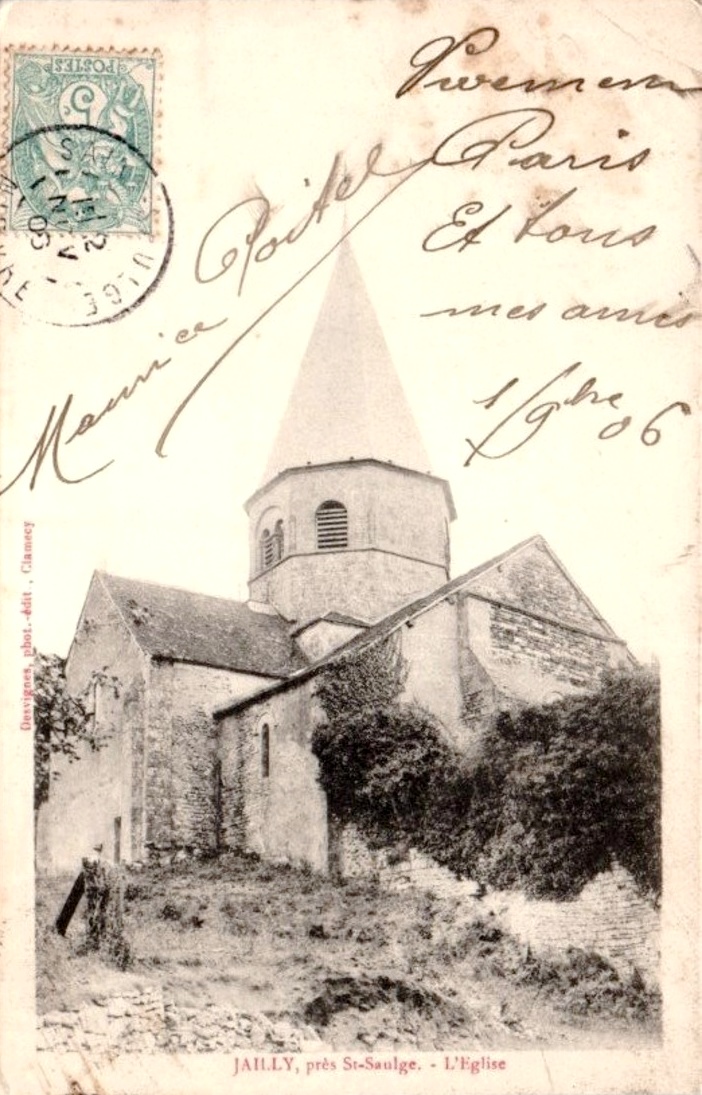 POSTES
5
Vivement
Paris
Et tous
mes amis
1/9bre 06
Maurice Poitel
Desvignes, phot.-édit., Clamecy
JAILLY, près St-Saulge. - L'Eglise